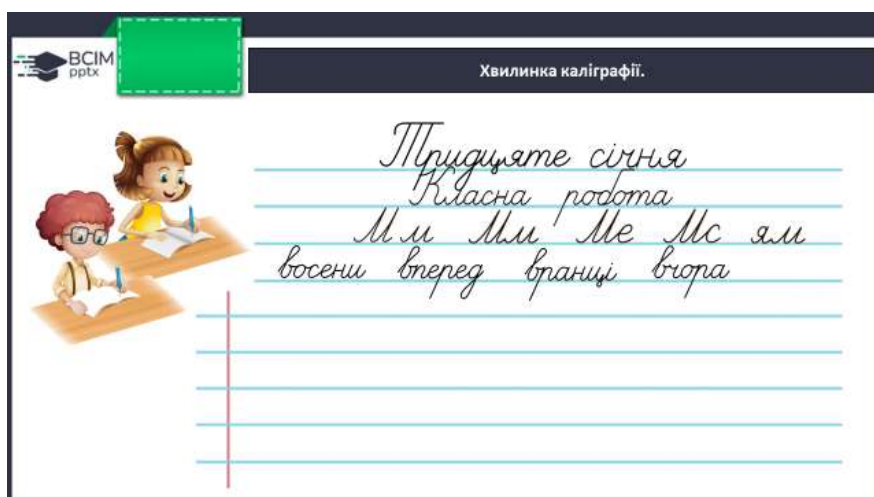 ВСІМ
pptx
Хвилинка каліграфії.
Тридцяте січня
Класна робота
М м Мм Ме Мс ям
восени вперед вранці вчора